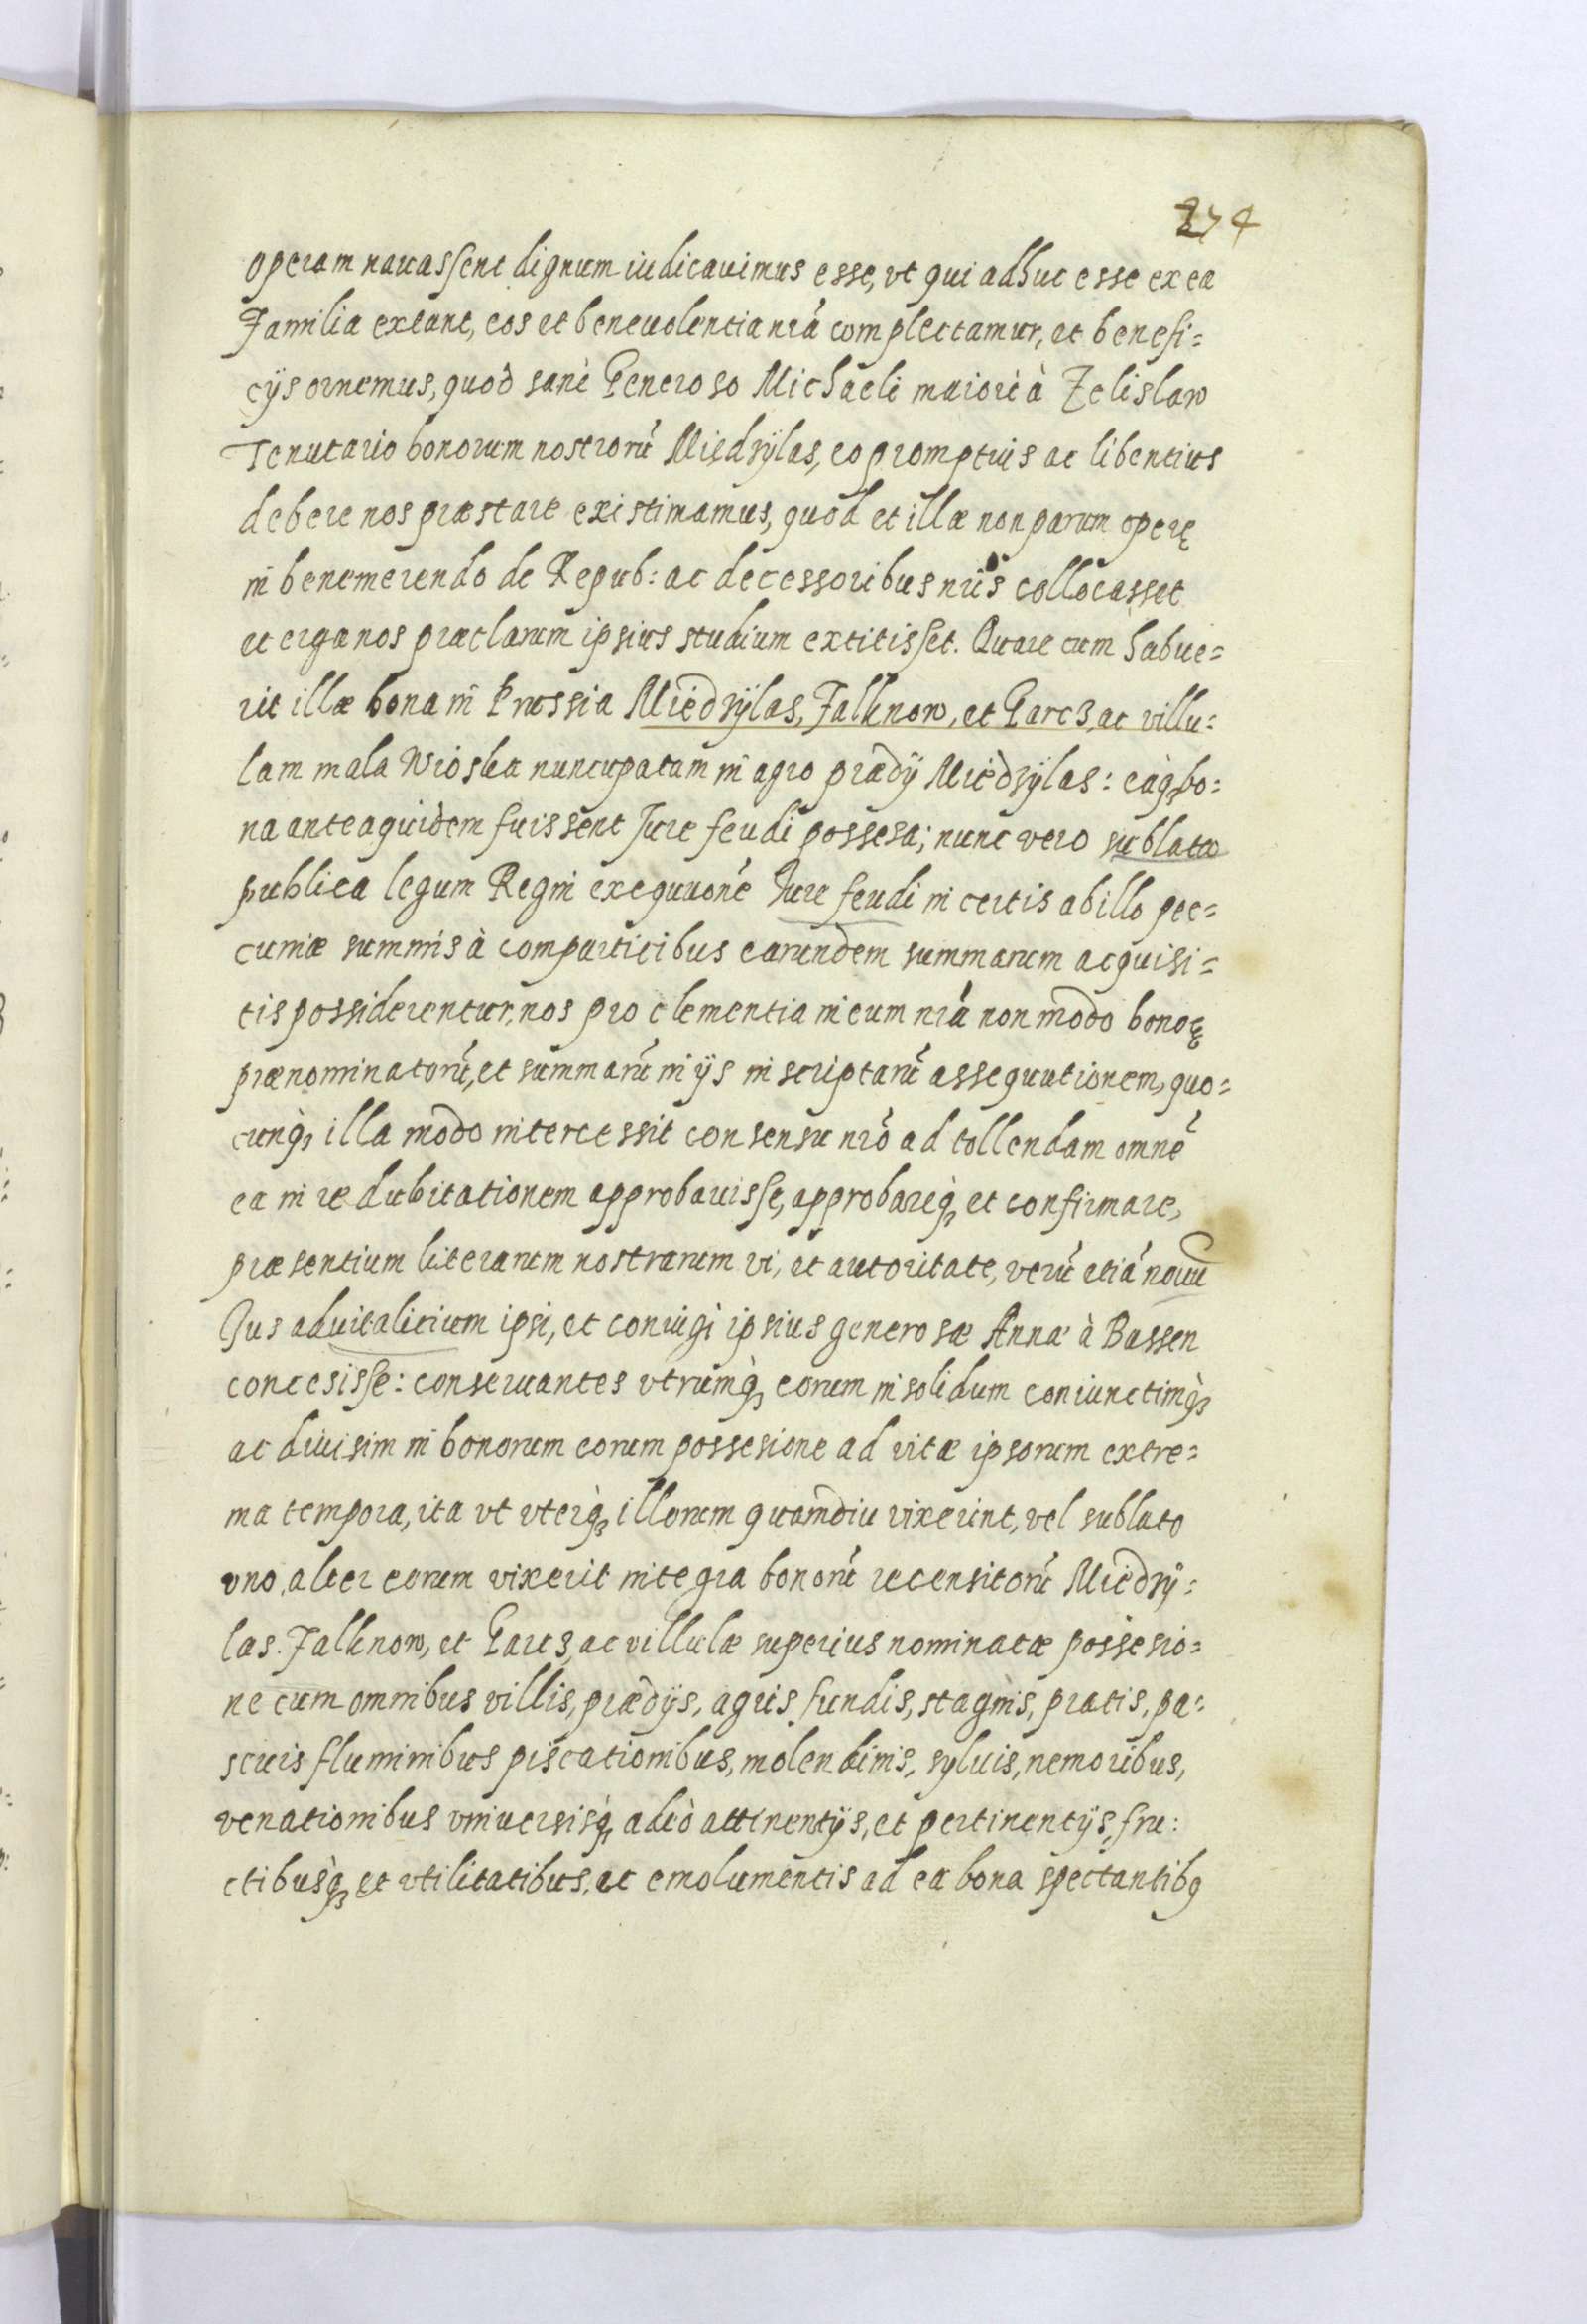 274
operam nauassent dignum iudicauimus esse, vt qui adhuc esse ex ea
Familia extant, eos et beneuolentia nrã complectamur, et benefi=
cÿs ornemus, quod sanè Generoso Michaeli maiori à Zelislaw
Tenutario bonorum nostrorũ Miedzÿlas, eo promptius ac libentius
debere nos præstare existimamus, quod et illæ non parum operę
in benemerendo de Repub: ac decessoribus nrĩs collocasset
et erga nos præclarum ipsius studium extitisset. Quare cum habue=
rit illæ bona in Prussia Miedzÿlas, Falknow, et Garcz, ac villu=
lam mala Wioska nuncupatam in agro prædÿ Miedzÿlas: eaq̃ bo=
na antea quidem fuissent Jure feudi possesa; nunc vero sublato
publica legum Regni exequuonẽ Jure feudi in certis ab illo pec=
cuniæ summis à comparticibus earundem summarum acquisi=
tis possiderentur, nos pro clementia in eum nrã non modo bonoꝝ
prænominatorũ, et summarũ in ijs inscriptarũ assequutionem, quo=
cunq̃ illa modo intercessit consensu nrõ ad tollendam omnẽ
ea in re dubitationem approbauisse, approbareq̃ et confirmare,
præsentium literarum nostrarum vi, et autoritate, verũ etiã nouũ
Jus aduitalitium ipsi, et coniugi ipsius generosæ Annæ à Bassen
concesisse: conseruantes vtrumq̃ eorum in solidum coniunctimq̃
ac diuisim in bonorum eorum possesione ad vitæ ipsorum extre=
ma tempora, ita vt vterq̃ illorum quamdiu vixerint, vel sublato
vno alter eorum vixerit integra bonorũ recensitorũ Miedzÿ=
las. Falknow, et Garcz, ac villulæ superius nominatæ possesio=
ne cum omnibus villis, prædijs, agris, fundis, stagnis, pratis, pa=
scuis fluminibus piscationibus, molendinis, syluis, nemoribus,
venationibus vniuersisq̃ adeò attinentijs, et pertinentijs, fru=
ctibusq̃ et vtilitatibus, ac emolumentis ad ea bona spectantibꝰ